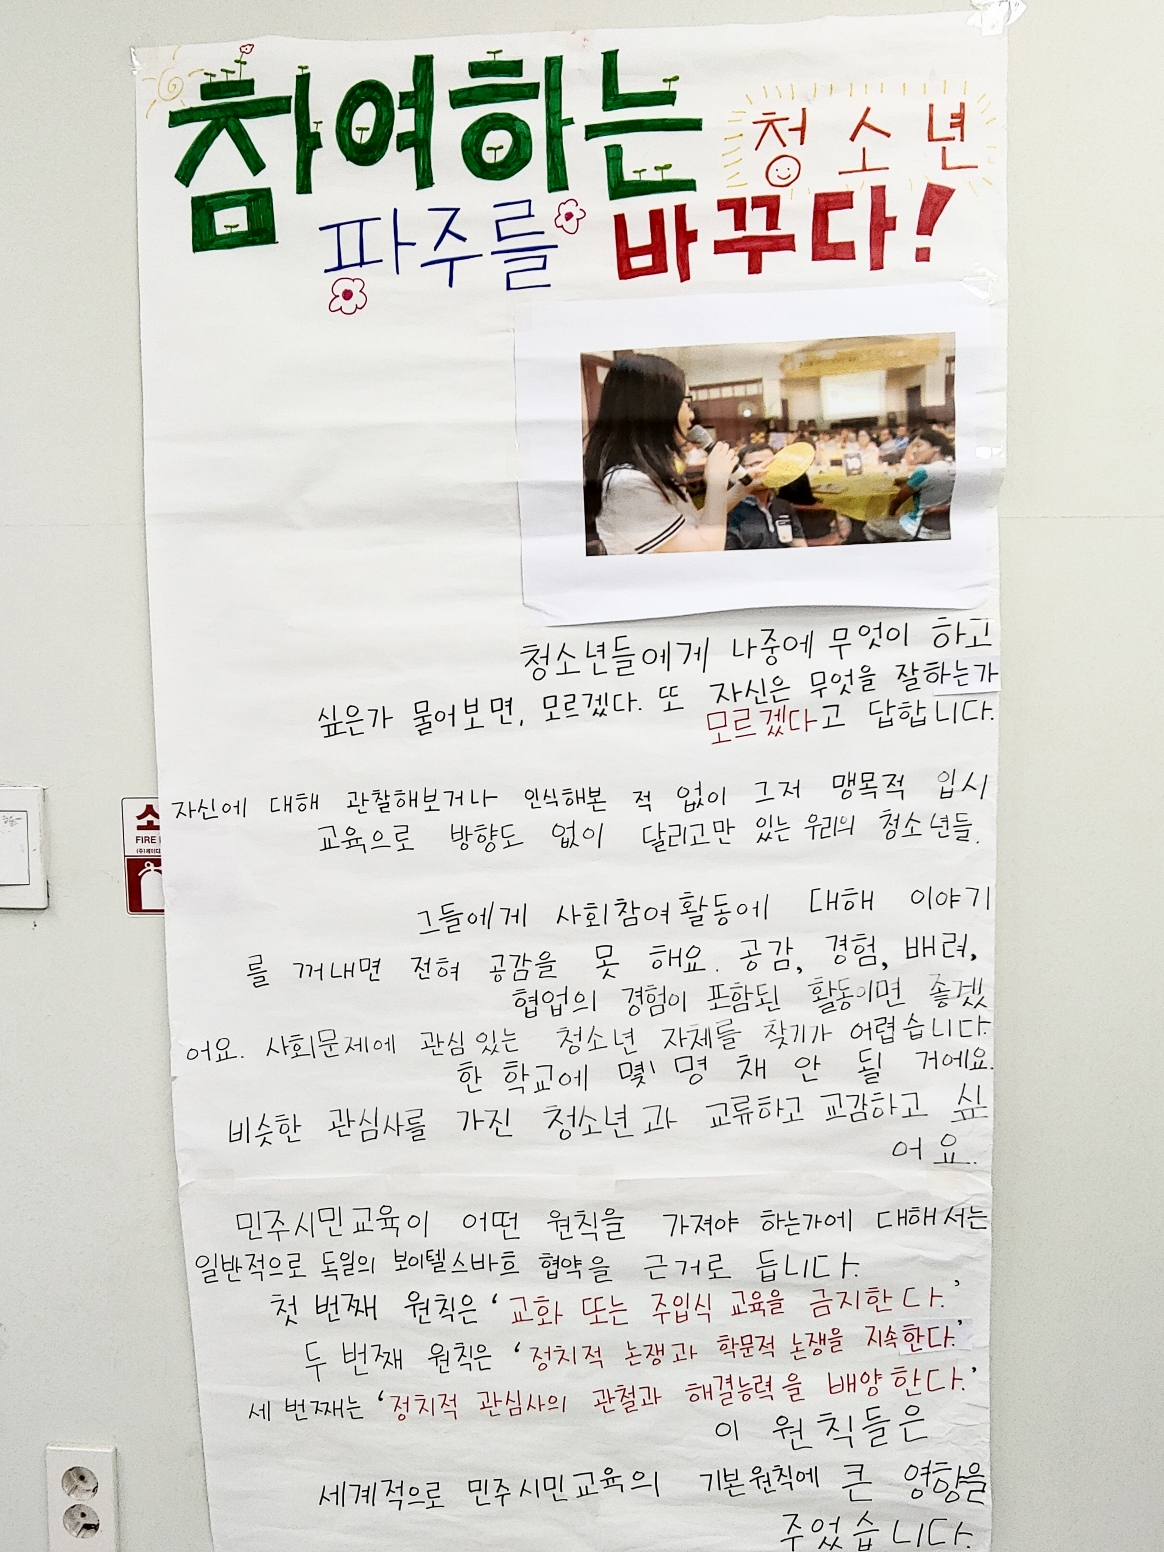 참여하는 청소년
파주를 바꾸다!
청소년들에게 나중에 무엇이 하고
싶은가 물어보면, 모르겠다. 또 자신은 무엇을 잘하는가
모르겠다고 답합니다.
자신에 대해 관찰해보거나 인식해본 적 없이 그저 맹목적 입시
교육으로 방향도 없이 달리고만 있는 우리의 청소년들.
그들에게 사회참여활동에 대해 이야기
를 꺼내면 전혀 공감을 못 해요. 공감, 경험, 배려,
협업의 경험이 포함된 활동이면 좋겠
어요. 사회문제에 관심 있는 청소년 자체를 찾기가 어렵습니다.
한 학교에 몇 명 채 안 될 거에요.
비슷한 관심사를 가진 청소년과 교류하고 교감하고 싶
어요.
민주시민교육이 어떤 원칙을 가져야 하는가에 대해서는
일반적으로 독일의 보이텔스바흐 협약을 근거로 듭니다.
첫 번째 원칙은 '교화 또는 주입식 교육을 금지한다.'
두 번째 원칙은 '정치적 논쟁과 학문적 논쟁을 지속한다.'
세 번째는 '정치적 관심사의 관철과 해결능력을 배양한다.'
이 원칙들은
세계적으로 민주시민교육의 기본원칙에 큰 영향을
주었습니다.
소
FIRE